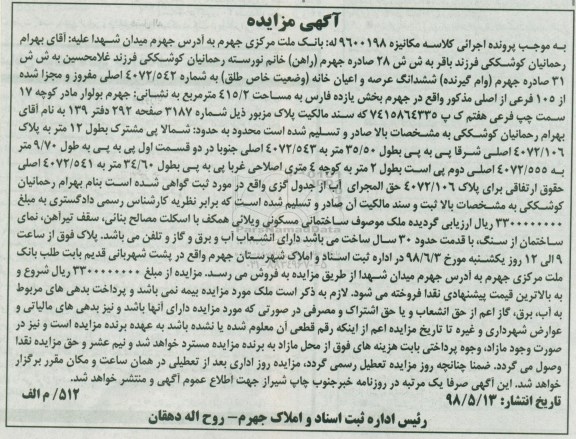 آگهی مزایده
به موجب پرونده اجرائی کلاسه مکانیزه ۹۶۰۰۱۹۸ له: بانک ملت مرکزی جهرم به آدرس جهرم میدان شهدا علیه: آقای بهرام
رحمانیان کوشککی فرزند باقر به ش ش ۲۸ صادره جهرم (راهن) خانم نورسته رحمانیان کوشککی فرزند غلامحسین به ش ش
۳۱ صادره جهرم (وام گیرنده) ششدانگ عرصه و اعیان خانه (وضعیت خاص طلق) به شماره ۴۰۷۲/۵۴۲ اصلی مفروز و مجزا شده
از ۱۰۵ فرعی از اصلی مذکور واقع در جهرم بخش یازده فارس به مساحت ۴۱۵/۲ مترمربع به نشانی: جهرم بولوار مادر کوچه ۱۷
سمت چپ فرعی هفتم ک پ ۷۴۱۵۸۶۴۳۳۵ که سند مالکیت پلاک مزبور ذیل شماره ۳۱۸۷ صفحه ۲۹۲ دفتر ۱۳۹ به نام آقای
بهرام رحمانیان کوشککی به مشخصات بالا صادر و تسلیم شده است محدود به حدود: شمالا پی مشترک بطول ۱۲ متر به پلاک
۴۰۷۲/۱۰۶ اصلی شرقا پی به پی بطول ۳۵/۵۰ متر به ۴۰۷۲/۵۴۳ اصلی جنوبا در دو قسمت اول پی به پی به طول ۹/۷۰ متر
به ۴۰۷۲/۵۵۵ اصلی دوم پی است بطول ۲ متر به کوچه ۴ متری اصلاحی غربا پی به پی بطول ۳۴/۶۰ متر به ۴۰۷۲/۵۴۱ اصلی
حقوق ارتفاقی برای پلاک ۴۰۷۲/۱۰۶ حق المجرای آب از جدول گزی واقع در مورد ثبت گواهی شده است بنام بهرام رحمانیان
کوشککی به مشخصات بالا ثبت و سند مالکیت آن صادر و تسلیم شده است که برابر نظریه کارشناس رسمی دادگستری به مبلغ
۳۳۰۰۰۰۰۰۰۰ ریال ارزیابی گردیده ملک موصوف ساختمانی مسکونی ویلائی همکف با اسکلت مصالح بنائی، سقف تیرآهن، نمای
ساختمان از سنگ، با قدمت حدود ۳۰ سال ساخت می باشد دارای انشعاب آب و برق و گاز و تلفن می باشد. پلاک فوق از ساعت
۹ الی ۱۲ روز یکشنبه مورخ ۹۸/۶/۳ در اداره ثبت اسناد و املاک شهرستان جهرم واقع در پشت شهربانی قدیم بابت طلب بانک
ملت مرکزی جهرم به آدرس جهرم میدان شهدا از طریق مزایده به فروش می رسد. مزایده از مبلغ ۳۳۰۰۰۰۰۰۰۰ ریال شروع و
به بالاترین قیمت پیشنهادی نقدا فروخته می شود. لازم به ذکر است ملک مورد مزایده بیمه نمی باشد و پرداخت بدهی های مربوط
به آب، برق، گاز اعم از حق انشعاب و یا حق اشتراک و مصرفی در صورتی که مورد مزایده دارای آنها باشد و نیز بدهی های مالیاتی و
عوارض شهرداری و غیره تا تاریخ مزایده اعم از اینکه رقم قطعی آن معلوم شده یا نشده باشد به عهده برنده مزایده است و نیز در
صورت وجود مازاد، وجوه پرداختی بابت هزینه های فوق از محل مازاد به برنده مزایده مسترد خواهد شد و نیم عشر و حق مزایده نقدا
وصول می گردد. ضمنا چنانچه روز مزایده تعطیل رسمی گردد، مزایده روز اداری بعد از تعطیلی در همان ساعت و مکان مقرر برگزار
خواهد شد. این آگهی صرفا یک مرتبه در روزنامه خبرجنوب چاپ شیراز جهت اطلاع عموم آگهی و منتشر خواهد شد.
تاریخ انتشار: ۹۸/۵/۱۳
۵۱۲/ م الف
رئیس اداره ثبت اسناد و املاک جهرم – روح اله دهقان